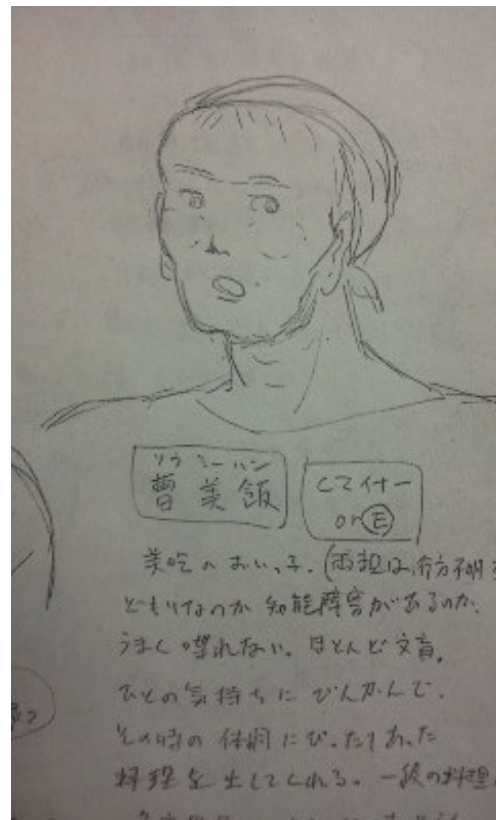 ソウ ミーハン
曹 美飯
Cマイナー
or Ⓔ
美吃のおいっ子。(両担は行方不明
どもりなのか知能障害があるのか、
うまく喋れない。ほとんど文盲。
ひとの気持ちにびんかんで、
その時の体調にぴったりあった
料理を出してくれる。一般の料理